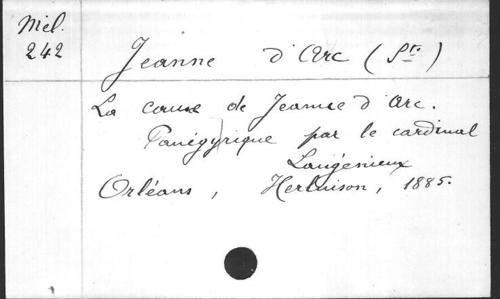 Mel.
242
Jeanne d'Arc (Ste)
La cause de Jeanne d'Arc.
Panégyrique par le cardinal
Langénieux
Orléans, Herluison, 1885.